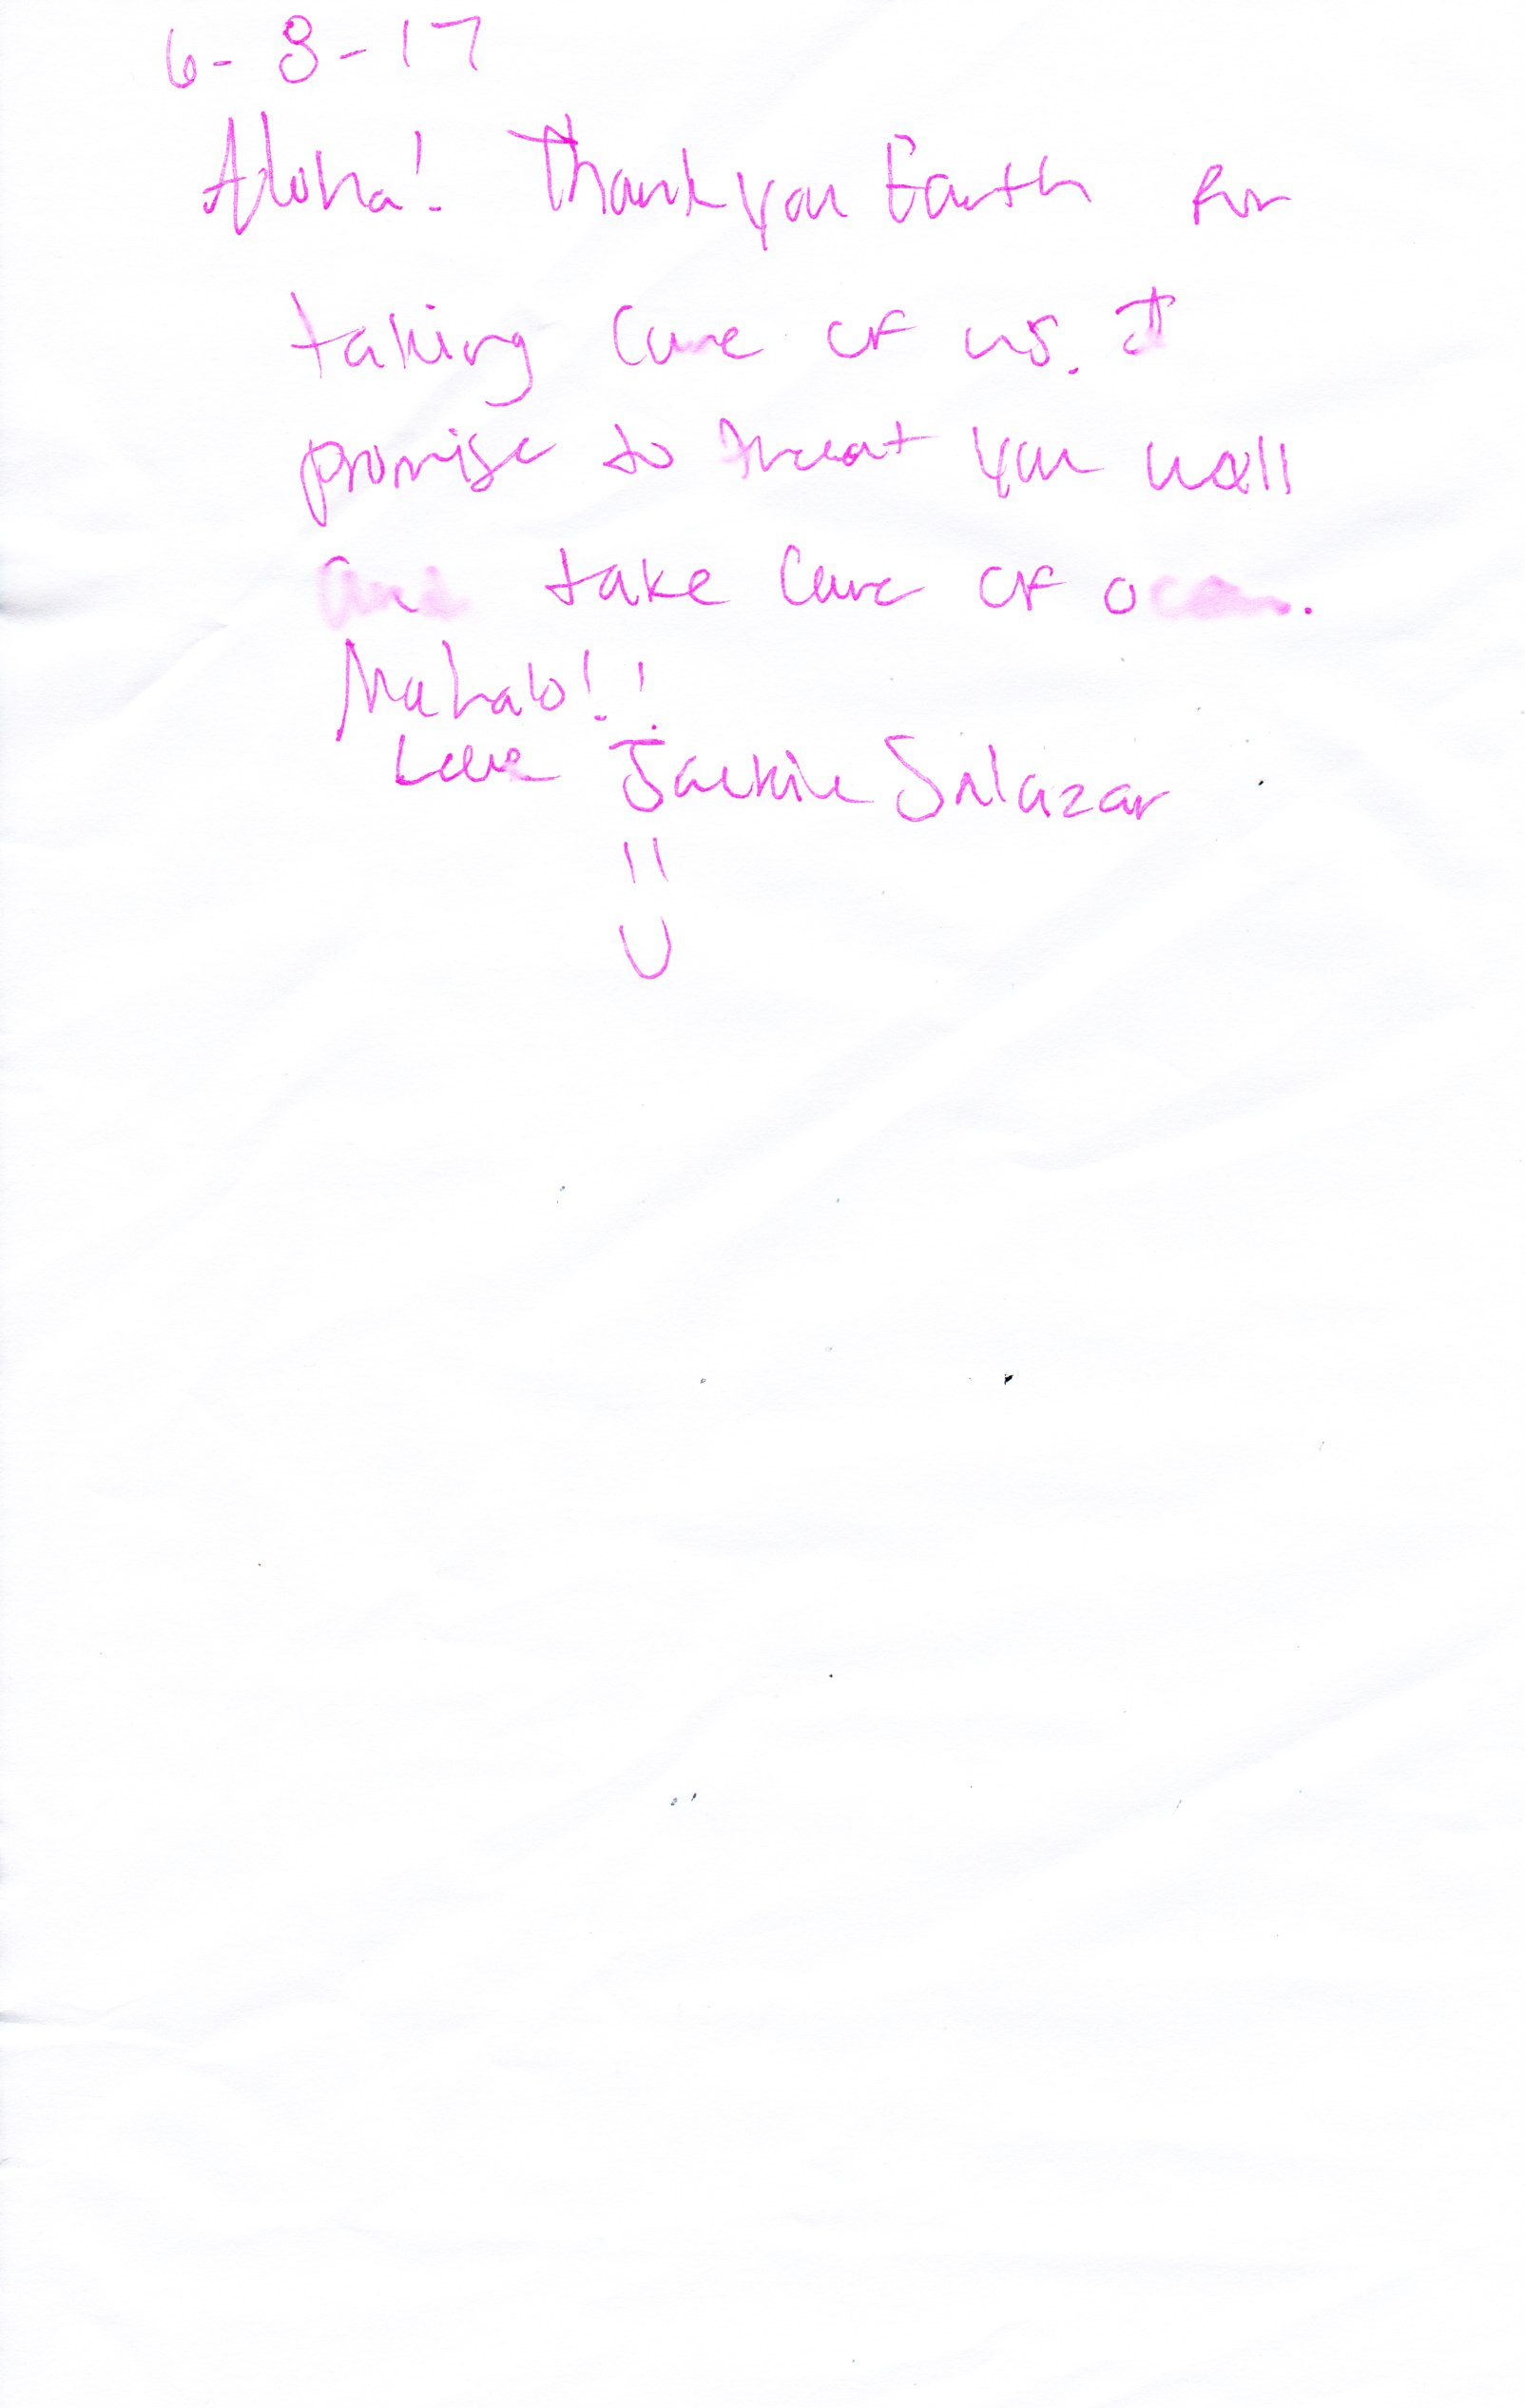 6-8-17
Aloha! Thank you Earth for
taking care of us. I
promise to treat you well
and take care of ocean.
Mahalo!!
Love Jackie Salazar